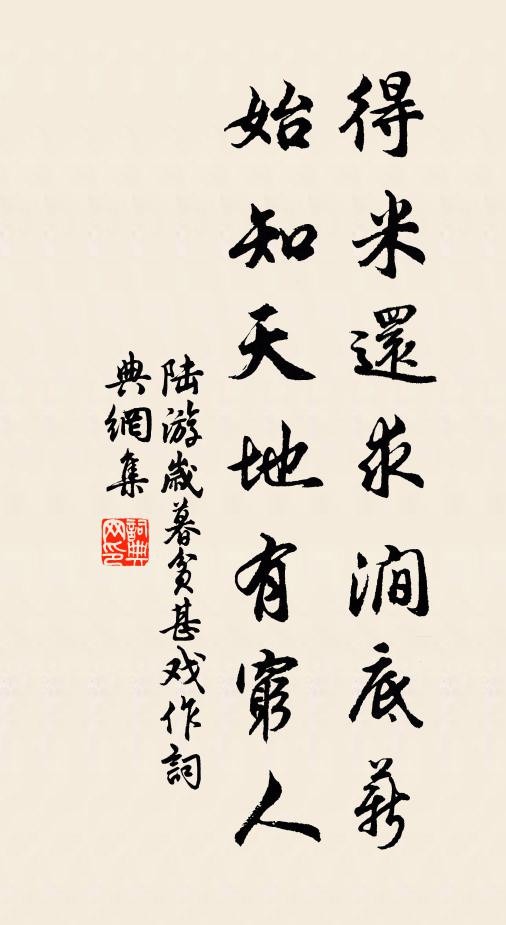 得米還求澗底薪
始知天地有窮人
陆游歲暮貧甚戏作詞
典網集
詞典网印